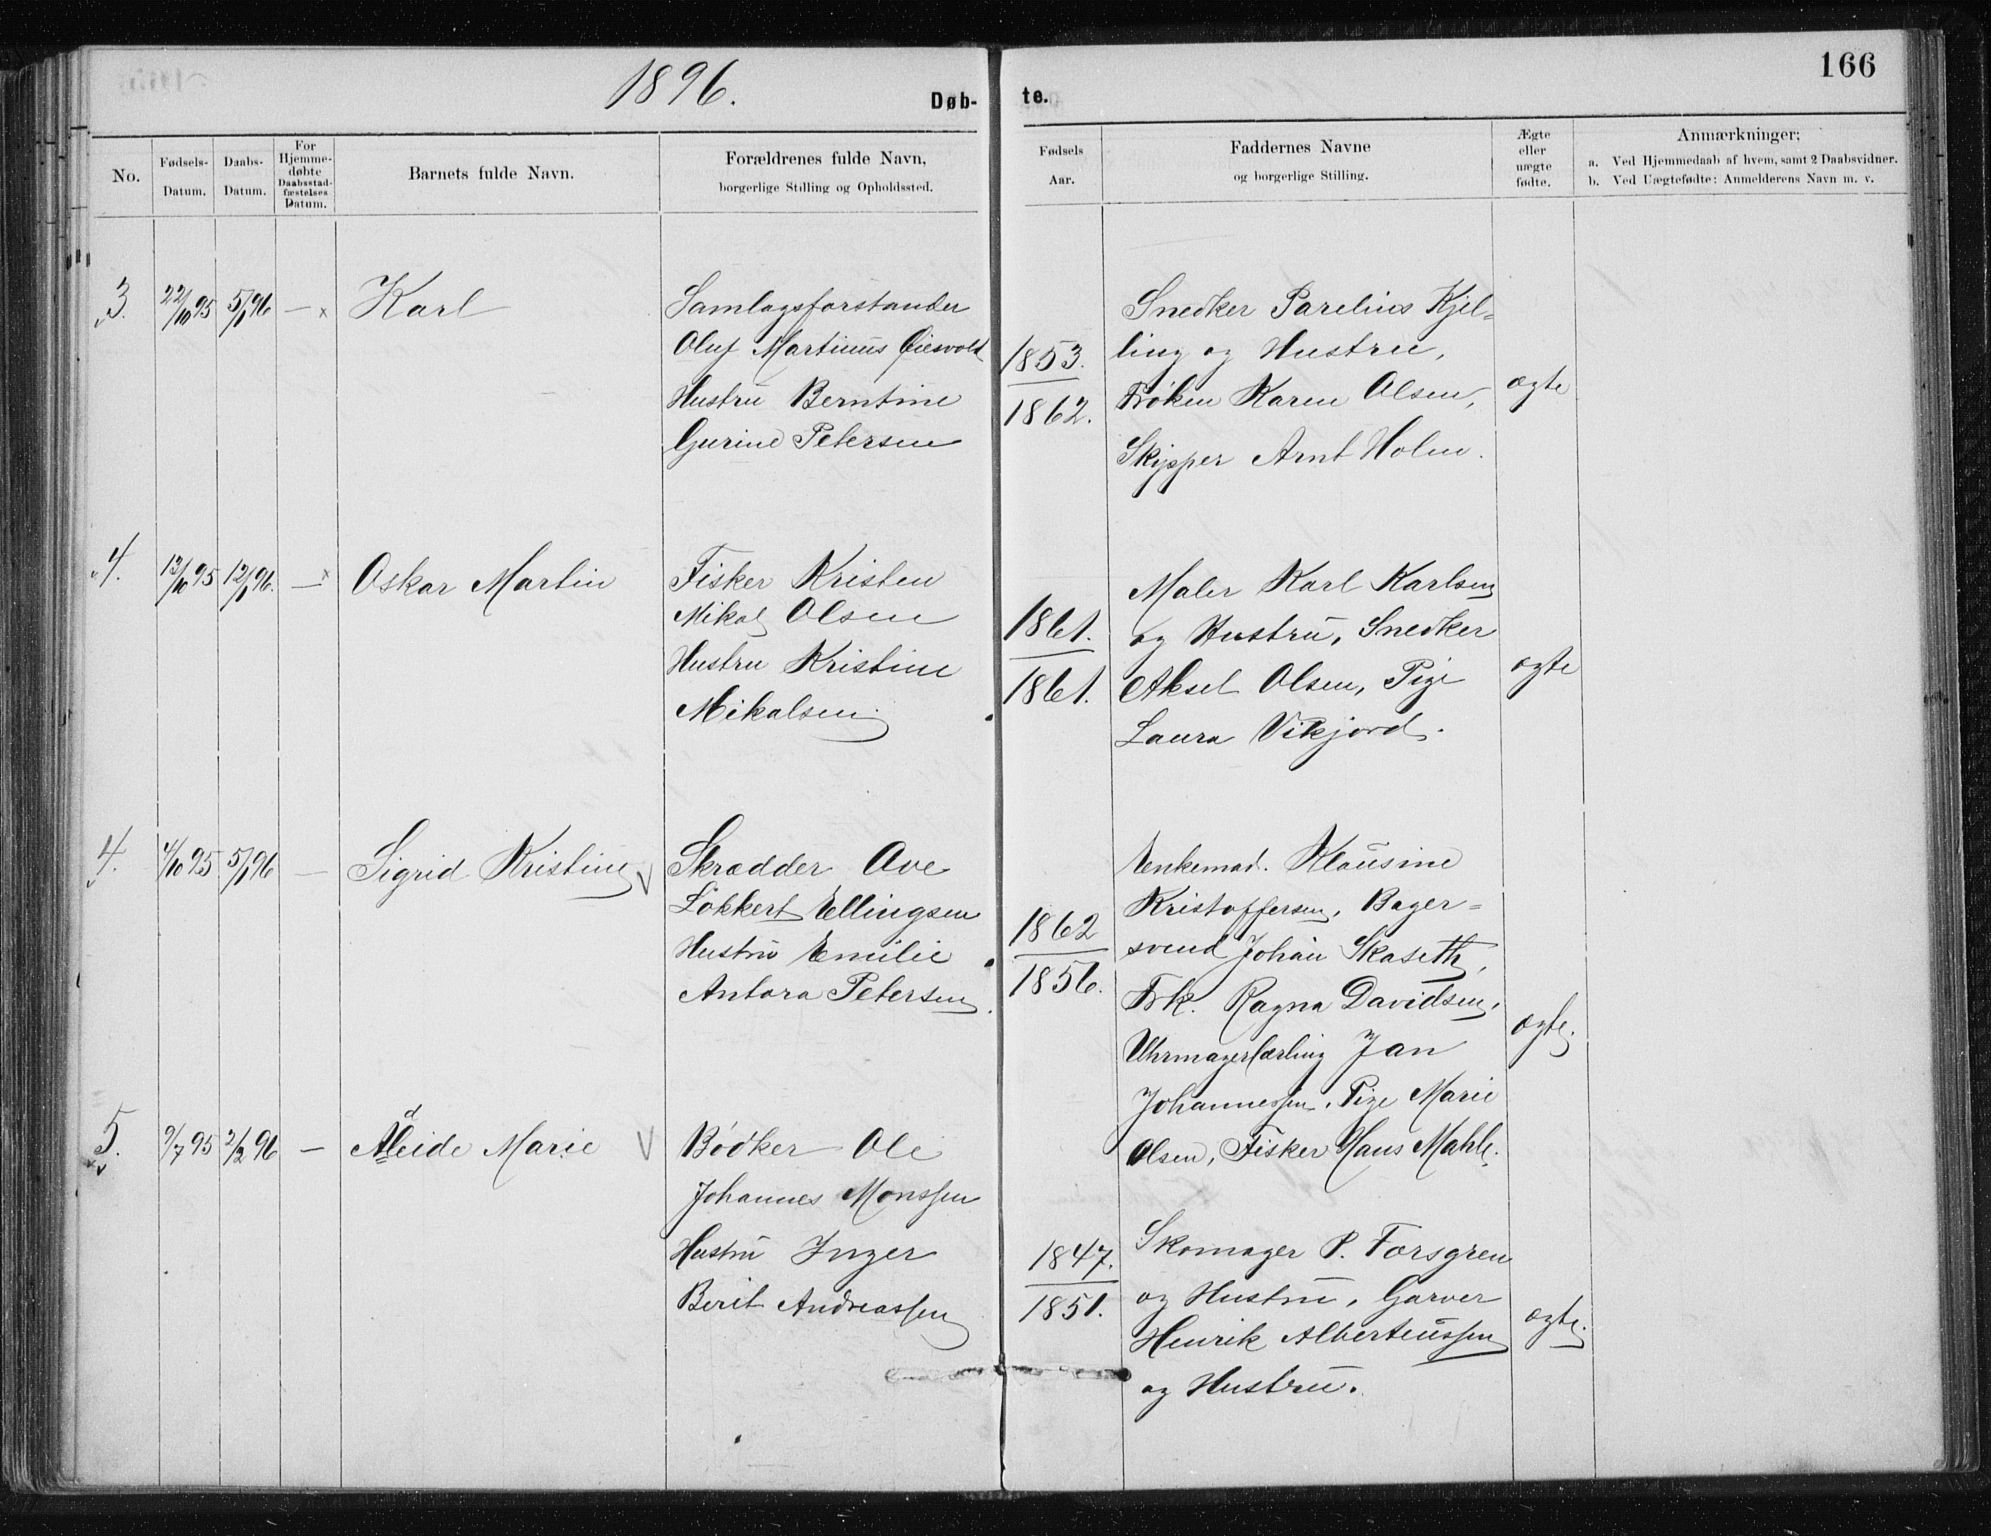 166
1896.
Døb-
te.
No.
Fødsels-
Datum.
Daabs-
Datum.
For
Hjemme-
døbte
Daabsstad-
fæstelses
Datum.
Barnets fulde Navn.
Forældrenes fulde Navn,
borgerlige Stilling og Opholdssted.
Fødsels
Aar.
Faddernes Navne
og borgerlige Stilling.
Ægte
eller
uægte
fødte.
Anmærkninger:
a. Ved Hjemmedaab af hvem, samt 2 Daabsvidner.
b. Ved Uægtefødte: Anmelderens Navn m. v.
3. 22/10 95 5/1 96 — x Karl
Samlagsforstander
Oluf Martinus
Hustru Berntine
Gurine Petersen
1853.
1862.
Snedker Parelius Kjel=
ling og Hustru,
Frøken Karen Olsen,
Skipper Arnt Holm.
ægte
4. 13/10 95 12/1 96. — x Oskar Martin
Fisker Kristen
Mikal Olsen
Hustru Kristine
Mikalsen.
1861.
1861.
Maler Karl Karlsen
og Hustru, Snedker
Aksel Olsen, Pige
Laura Vikjord.
ægte
4. 4/10 95 5/1 96 — Sigrid Kristine V
Skrædder Ove
Løkkert Ellingsen
Hustru Emilie
Antora Petersen.
1862
1856.
Enkemad. Klausine
Kristoffersen, Bager=
svend Johan Skaseth,
Frk. Ragna Davidsen,
Uhrmagerlærling Jan
Johannessen, Pige Marie
Olsen, Fisker Hans Mahle.
ægte.
5. 9/7 95 2/2 96 — Aleide Marie V
d
Bødker Ole
Johannes Monssen
Hustru Inger
Berit Andreassen
1847.
1851.
Skomager P. Forsgren
og Hustru, Garver
Henrik Alberteussen
og Hustru.
ægte.